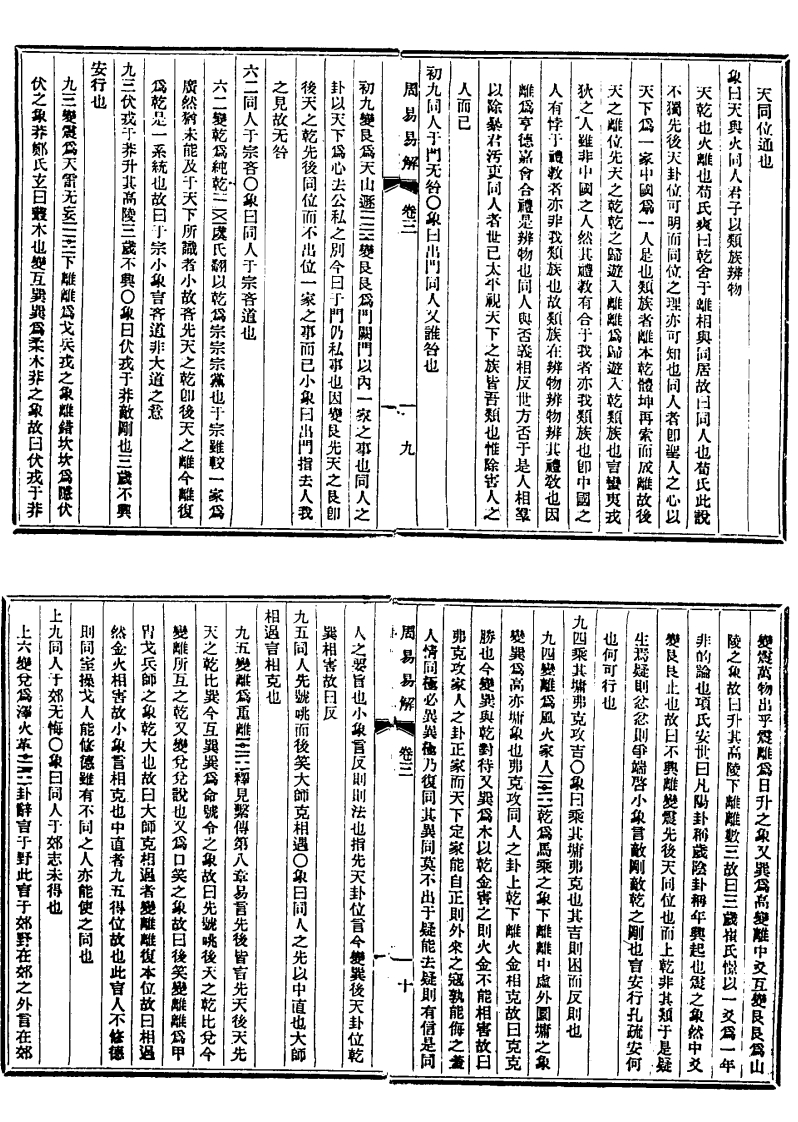 天同位通也
象曰天與火同人君子以類族辨物
天乾也火離也荀氏爽曰乾舍于離相與同居故曰同人也荀氏此說
不獨先後天卦位可明而同位之理亦可知也同人者卽聖人之心以
天下爲一家中國爲一人是也類族者離本乾體坤再索而成離故後
天之離位先天之乾乾之歸遊入離離爲歸遊入乾類族也言蠻夷戎
狄之人雖非中國之人然其禮教有合于我者亦我類族也卽中國之
人有悖于禮教者亦非我類族也故類族在辨物辨物辨其禮敎也因
離爲亨德嘉會合禮是辨物也同人與否義相反世方否于是人相羣
以除暴君汚吏同人者世已太平視天下之族皆吾類也惟除害人之
人而已
初九同人于門无咎〇象曰出門同人又誰咎也
周易易解
卷三
九
初九變艮爲天山遯変艮艮爲門闕門以內一家之事也同人之
卦以天下爲心去公私之別今曰于門仍私事也因變艮先天之艮卽
後天之乾先後同位而不出位一家之事而已小象曰出門指去人我
之見故无咎
六二同人于宗吝〇象曰同人于宗吝道也
六二變乾爲純乾虞氏翻以乾爲宗宗宗黨也于宗雖較一家爲
廣然猶未能及于天下所識者小故吝先天之乾卽後天之離今離復
爲乾是一系統也故曰于宗小象言吝道非大道之意
九三伏戎于莽升其高陵三歲不興〇象曰伏戎于莽敵剛也三歲不興
安行也
九三變震爲天雷无妄下離離爲戈兵戎之象離錯坎坎爲隱伏
伏之象莽鄭氏玄曰叢木也變互巽巽爲柔木莽之象故曰伏戎于莽
變震萬物出乎震離爲日升之象又巽爲高變離中爻互變艮艮爲山
陵之象故曰升其高陵下離離數三故曰三歲崔氏憬以一爻爲一年
非的論也項氏安世曰凡陽卦稱歲陰卦稱年興起也震之象然中爻
變艮艮止也故曰不興離變震先後天同位也而上乾非其類于是疑
生焉疑則忿忿則爭端啓小象言敵剛敵乾之剛也言安行孔疏安何
也何可行也
九四乘其墉弗克攻吉〇象曰乘其墉弗克也其吉則困而反則也
九四變離爲風火家人乾爲馬乘之象下離離中虛外圍墉之象
變巽爲高亦墉象也弗克攻同人之卦上乾下離火金相克故曰克克
勝也今變巽與乾對待又巽爲木以乾金害之則火金不能相害故曰
弗克攻家人之卦正家而天下定家能自正則外來之寇孰能侮之蓋
人情同極必異異極乃復同其異同莫不出于疑能去疑則有信是同
周易易解
卷三
十
人之要旨也小象言反則則法也指先天卦位言今變巽後天卦位乾
巽相害故曰反
九五同人先號咷而後笑大師克相遇〇象曰同人之先以中直也大師
相遇言相克也
九五變離爲重離釋見繫傳第八章易言先後皆言先天後天先
天之乾比巽今互巽巽爲命號令之象故曰先號咷後天之乾比兌今
變離所互之乾又變兌兌說也又爲口笑之象故曰後笑變離離爲甲
胄戈兵師之象乾大也故曰大師克相遇者變離離復本位故曰相遇
然金火相害故小象言相克也中直者九五得位故也此言人不修德
則同室操戈人能修德雖有不同之人亦能使之同也
上九同人于郊无悔〇象曰同人于郊志未得也
上六變兌爲澤火革卦辭言于野此言于郊野在郊之外言在郊